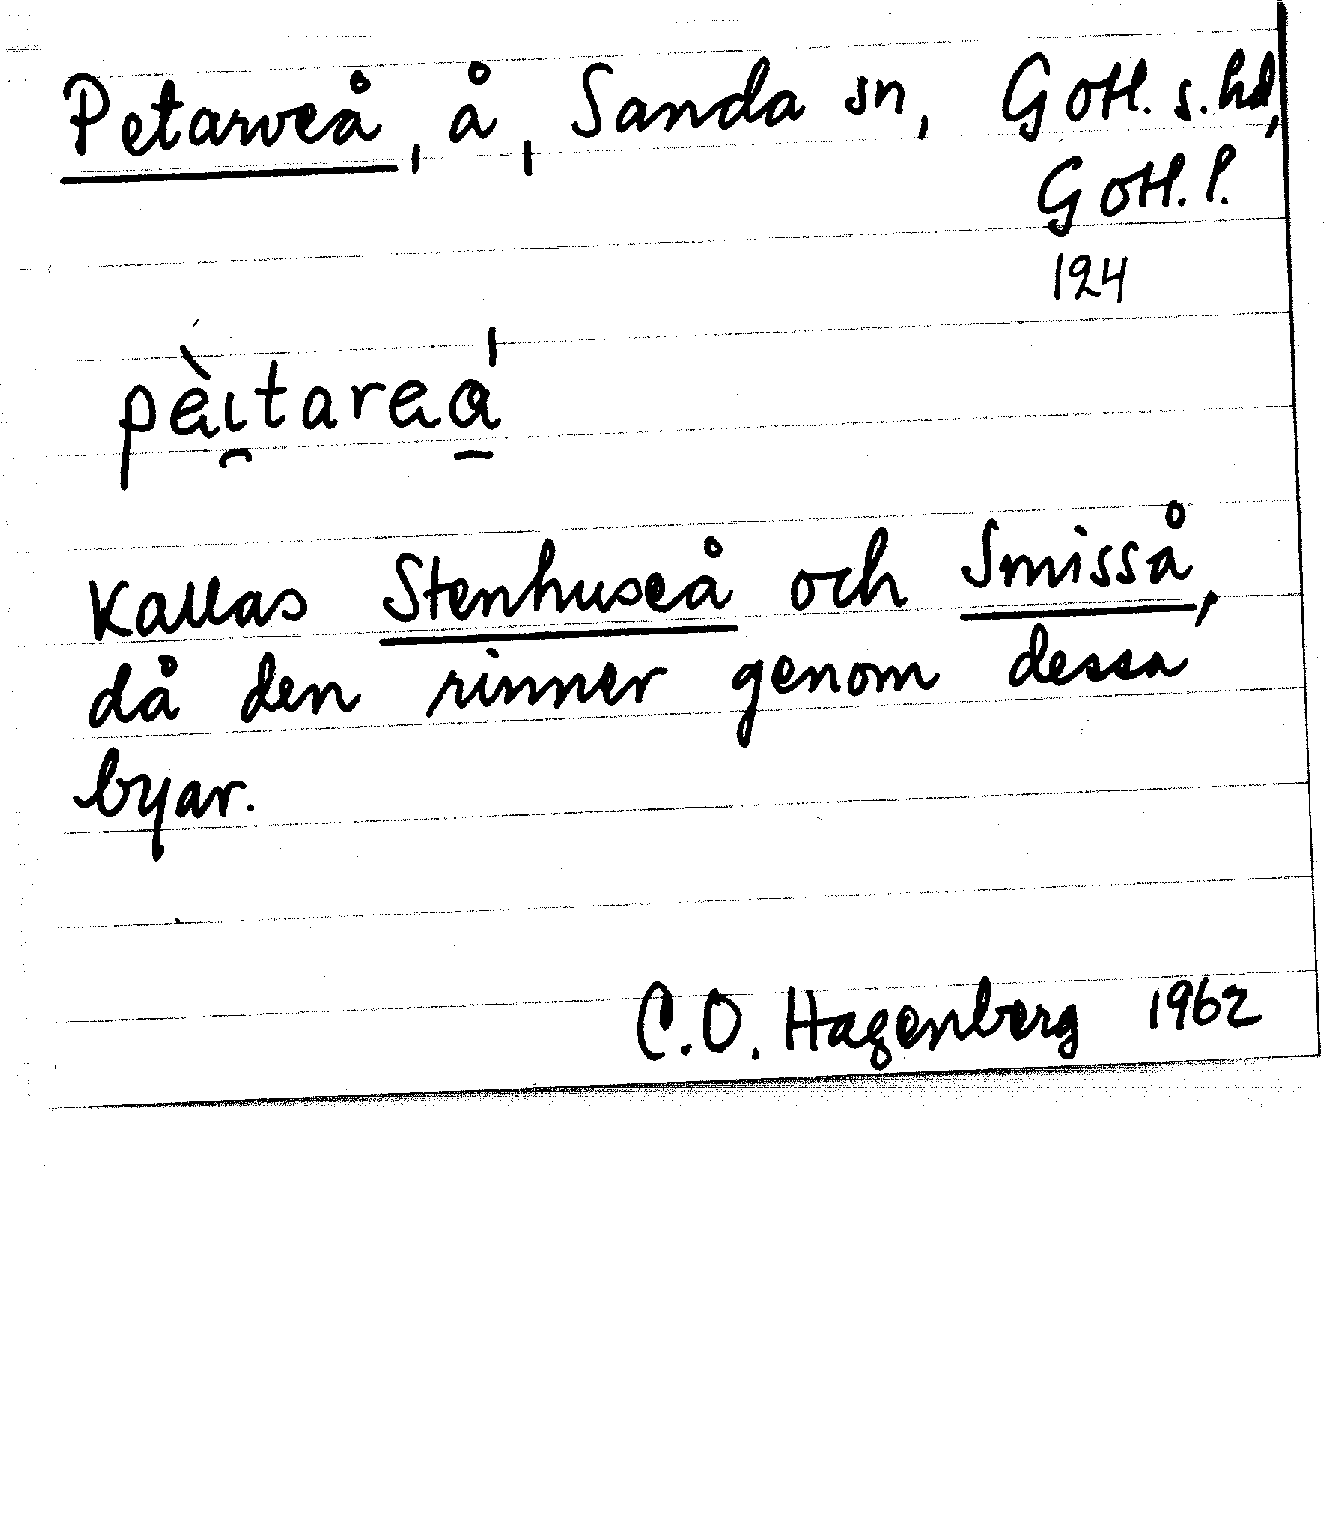 Petarveå, å, Sanda sn, Gotl. s. hd,
Gotl. l.
124
pèıt̯area̠̍
Kallas Stenhuseå och Smisså,
då den rinner genom dessa
byar.
C.O. Hagenberg 1962